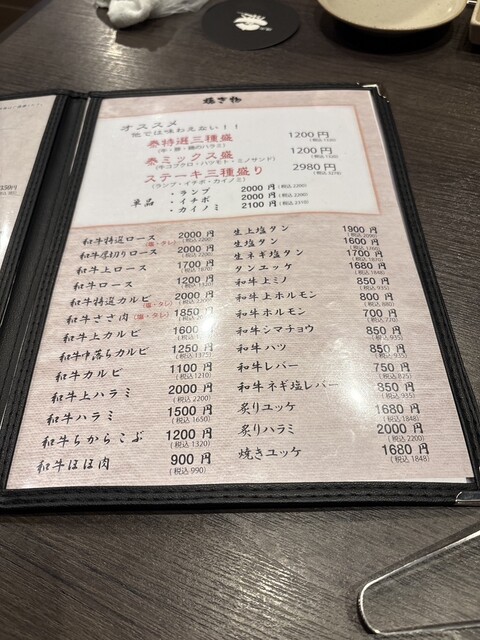 焼き物
オススメ
他では味わえない！！
泰特選三種盛 1200円 (税込1320)
(牛・豚・鶏のハラミ)
泰ミックス盛 1200円 (税込1320)
(牛コブクロ・ハツモト・ミノサンド)
ステーキ三種盛り 2980円 (税込3278)
(ランプ・イチボ・カイノミ)
単品 ・ランプ 2000円 (税込2200)
・イチボ 2000円 (税込2200)
・カイノミ 2100円 (税込2310)
和牛特選ロース (塩・タレ) 2000円 (税込2200)
和牛厚切りロース 2000円 (税込2200)
和牛上ロース 1700円 (税込1870)
和牛ロース 1200円 (税込1320)
和牛特選カルビ (塩・タレ) 2000円 (税込2200)
和牛ささ肉 (塩・タレ) 1850円
和牛上カルビ 1600円
和牛中落ちカルビ 1250円 (税込1375)
和牛カルビ 1100円 (税込1210)
和牛上ハラミ 2000円 (税込2200)
和牛ハラミ 1500円 (税込1650)
和牛ちからこぶ 1200円 (税込1320)
和牛ほほ肉 900円 (税込990)
生上塩タン 1900円 (税込2090)
生塩タン 1600円 (税込1760)
生ネギ塩タン 1700円 (税込1870)
タンユッケ 1680円 (税込1848)
和牛上ミノ 850円 (税込935)
和牛上ホルモン 800円 (税込880)
和牛ホルモン 700円 (税込770)
和牛シマチョウ 850円 (税込935)
和牛ハツ 850円 (税込935)
和牛レバー 750円 (税込825)
和牛ネギ塩レバー 850円 (税込935)
炙りユッケ 1680円 (税込1848)
炙りハラミ 2000円 (税込2200)
焼きユッケ 1680円 (税込1848)